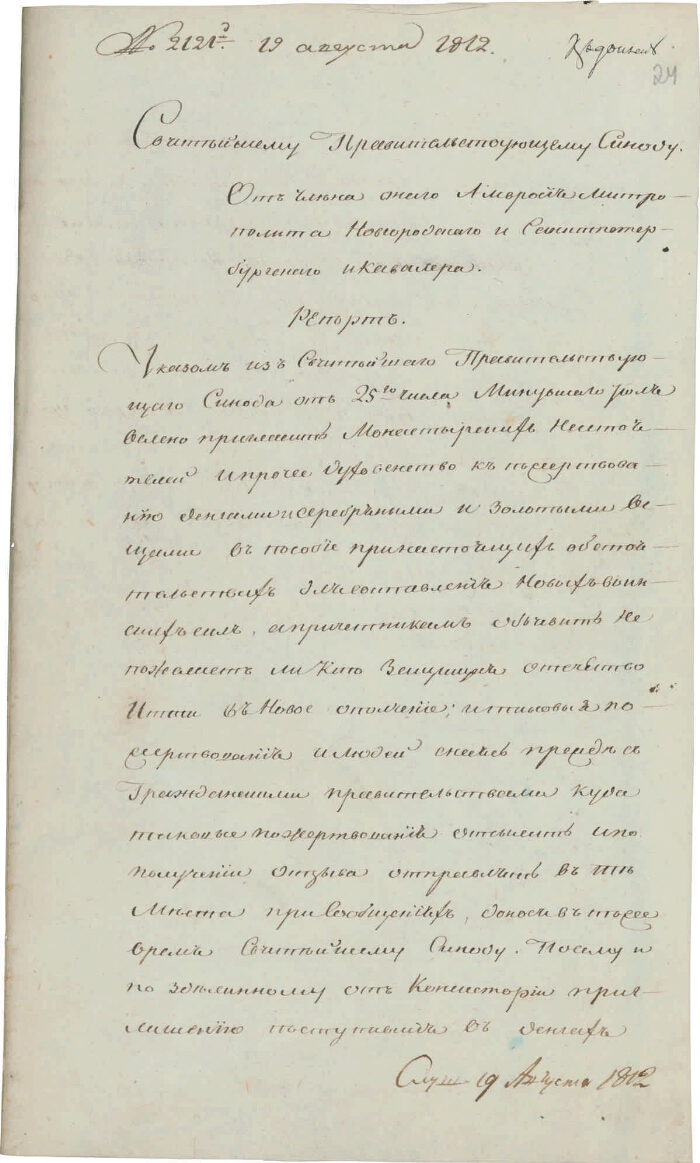 № 2121й. 19 августа 1812.
24
Святѣйшему Правительствующему Синоду.
Отъ члена онаго Амвросія Митро-
полита Новгородскаго и Санктпетер-
бургскаго и кавалера.
Репортъ.
Указомъ изъ Святѣйшаго Правительствую-
щаго Синода отъ 25го числа Минувшаго Іюля
велено пригласить Монастырскихъ Настоя-
телей и прочее духовенство къ пожертвова-
нію деньгами и серебряными и золотыми ве-
щами въ пособіе при настоящихъ обстоя-
тельствахъ для составленія Новыхъ воин-
скихъ силъ, а причетникамъ объявить не
пожелаетъ ли кто Защищая отечество
Итти въ Новое ополчение; и таковыя по-
жертвованія и людей снесясь прежде съ
Гражданскими правительствами куда
таковые пожертвованія отсылать и по
получении отзыва отправлять въ тѣ
Мѣста при сообщеніяхъ, донося въ тоже
время Святѣйшему Синоду. Посему и
по здѣланному отъ Консисторіи приг-
лашенію поступившія въ деньгахъ
Слуш 19 Августа 1812